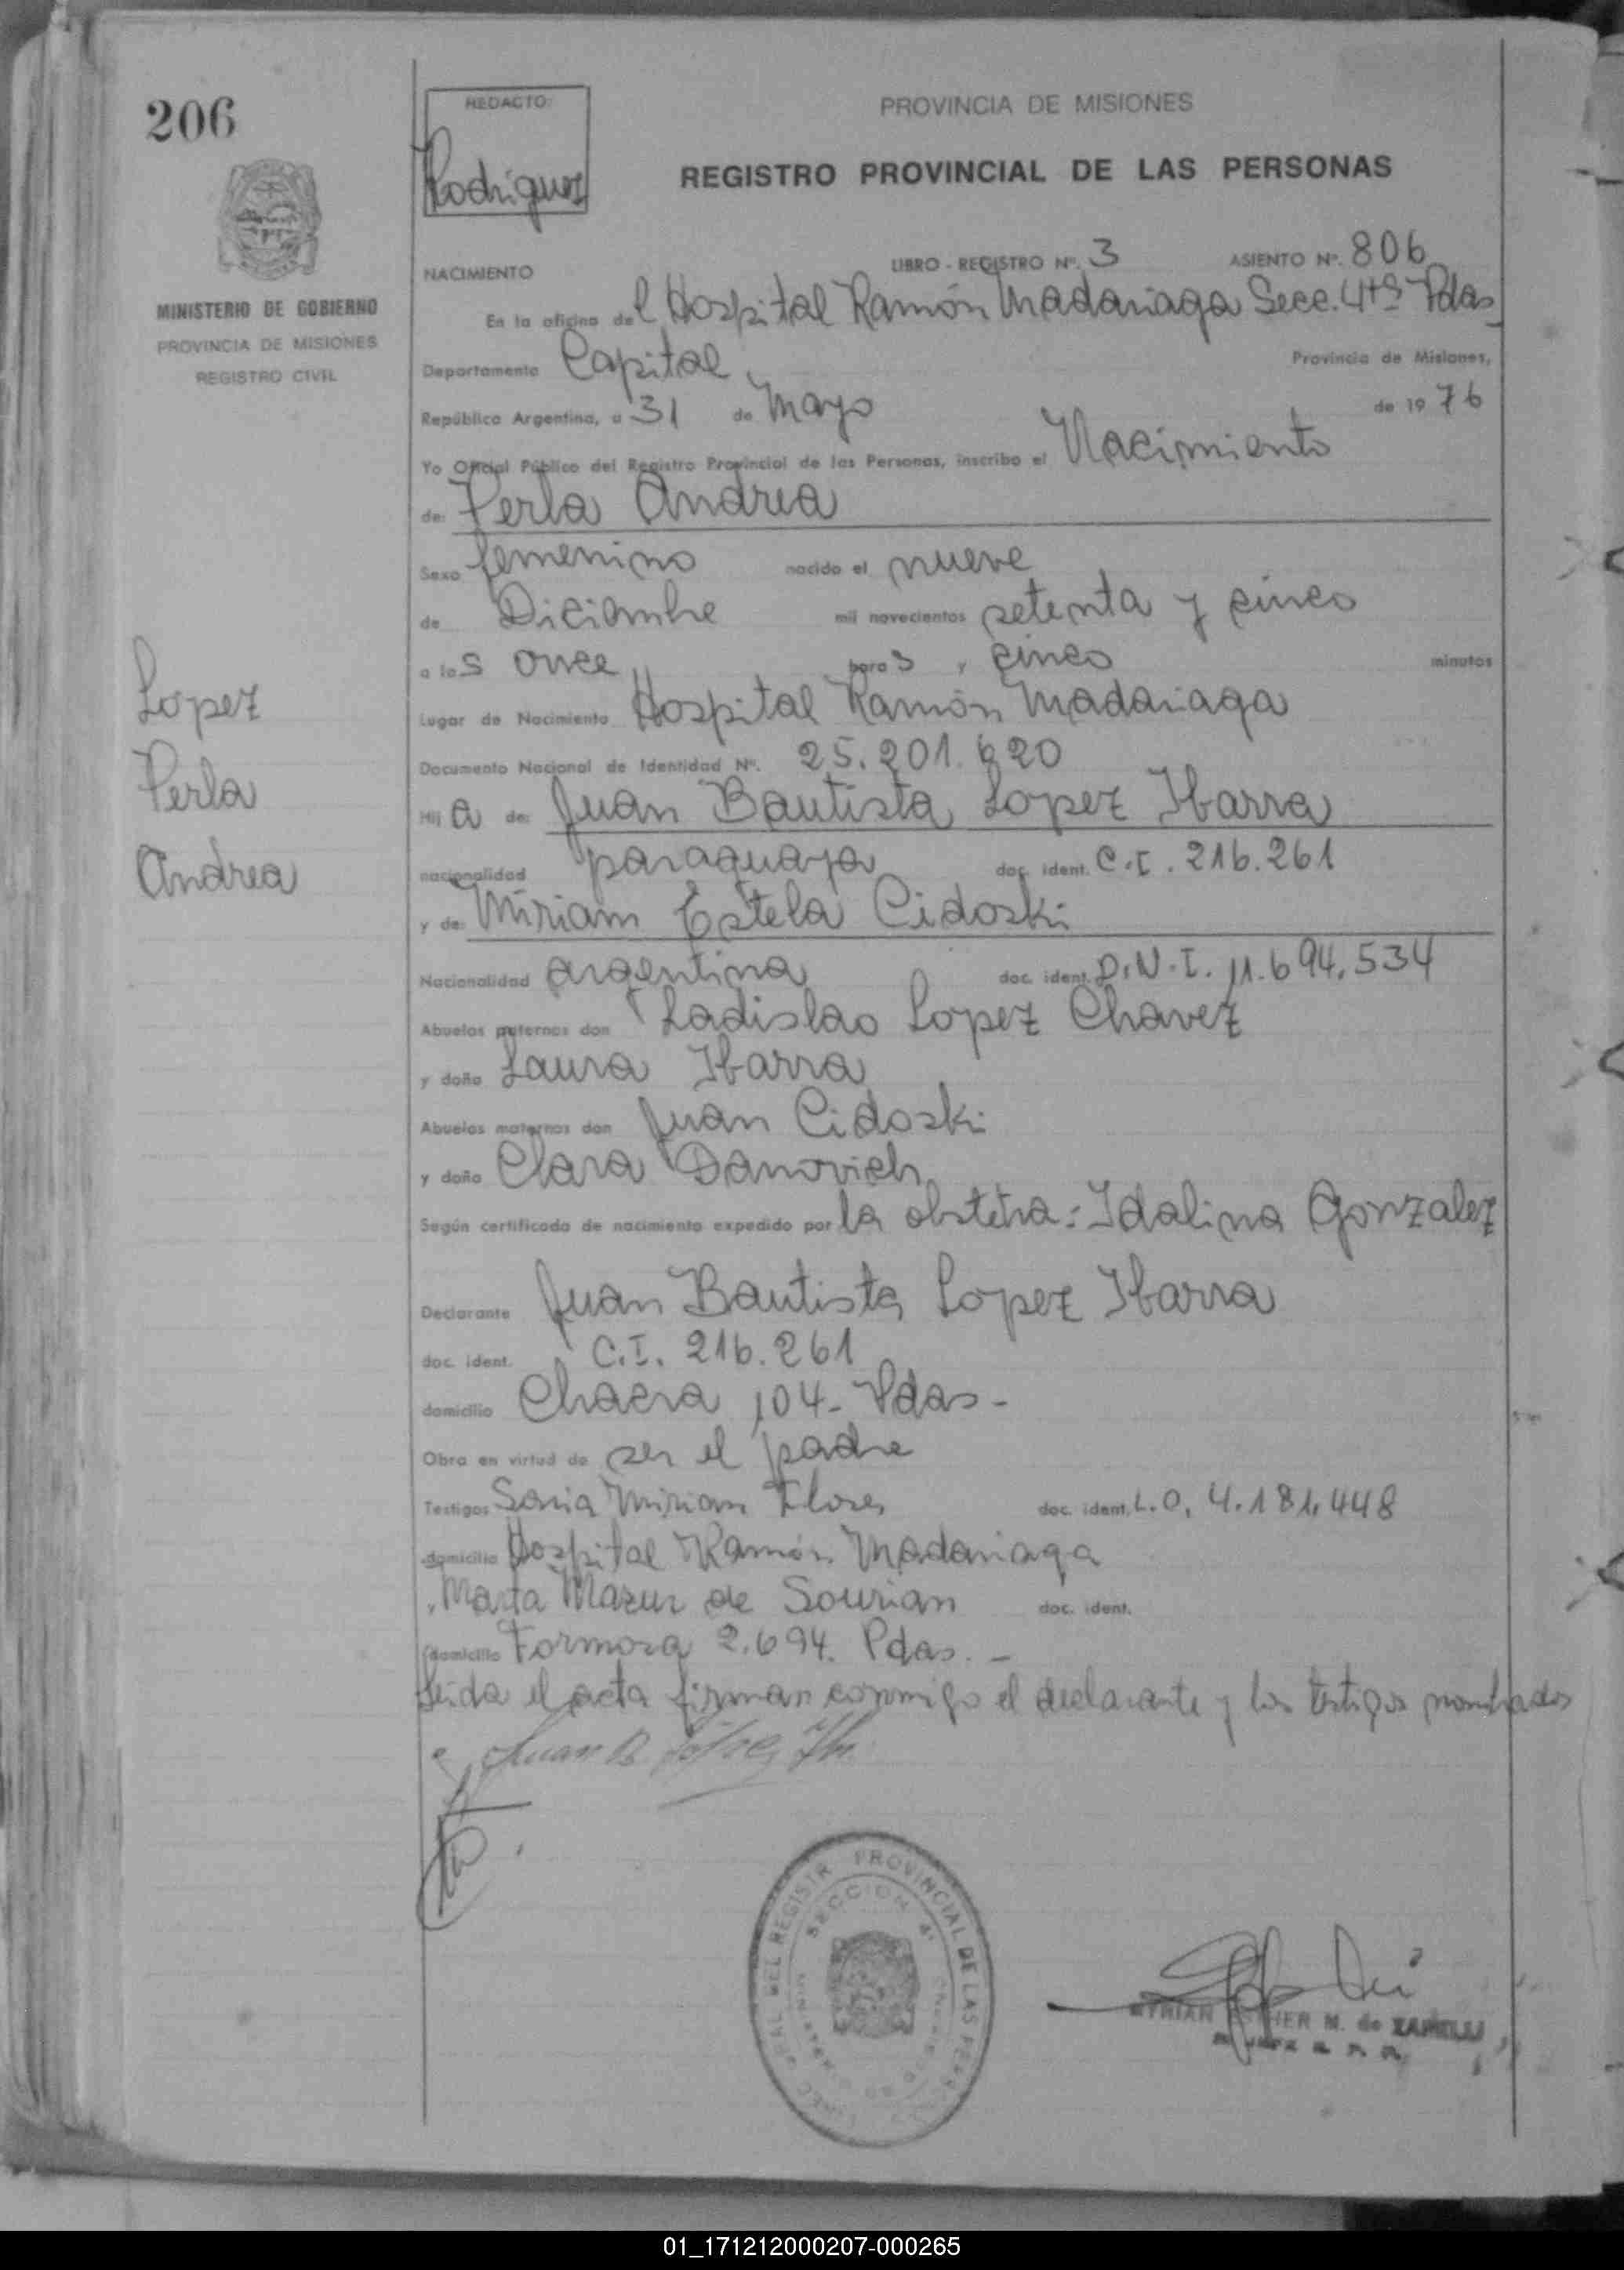 206
REDACTO:
Rodriguez
PROVINCIA DE MISIONES
REGISTRO PROVINCIAL DE LAS PERSONAS
MINISTERIO DE GOBIERNO
PROVINCIA DE MISIONES
REGISTRO CIVIL
NACIMIENTO LIBRO - REGISTRO Nº. 3 ASIENTO Nº. 806
En la oficina del Hospital Ramón Madariaga Secc. 4ta Pdas
Departamento Capital Provincia de Misiones,
República Argentina, a 31 de Mayo de 1976
Yo Oficial Público del Registro Provincial de las Personas, inscribo el Nacimiento
de: Perla Andrea
Sexo femenino nacido el nueve
de Diciembre mil novecientos setenta y cinco
a las once horas y cinco minutos
Lugar de Nacimiento Hospital Ramón Madariaga
Documento Nacional de Identidad Nº. 25.201.620
Lopez
Perla
Andrea
Hija de: Juan Bautista Lopez Ibarra
nacionalidad paraguaya doc. ident. C.I. 216.261
y de: Miriam Estela Cidoski
Nacionalidad argentina doc. ident. D.N.I. 11.694.534
Abuelos paternos don Ladislao Lopez Chavez
y doña Laura Ibarra
Abuelos maternos don Juan Cidoski
y doña Clara Danovich
Según certificado de nacimiento expedido por la obstetra: Idalina Gonzalez
Declarante Juan Bautista Lopez Ibarra
doc. ident. C.I. 216.261
domicilio Chacra 104- Pdas-
Obra en virtud de ser el padre
Testigos Sonia Mirian Flores doc. ident. L.C. 4.181.448
domicilio Hospital Ramón Madariaga
Marta Mazur de Sourian doc. ident.
domicilio Formosa 2.694. Pdas. -
Leida el acta firman conmigo el declarante y los testigos nombrados
Juan B. López Ib.
REGISTR PROVINCIAL DE LAS PERS
SECCION 4ª
MYRIAN ESTHER M. de ZAPELLI
01_171212000207-000265